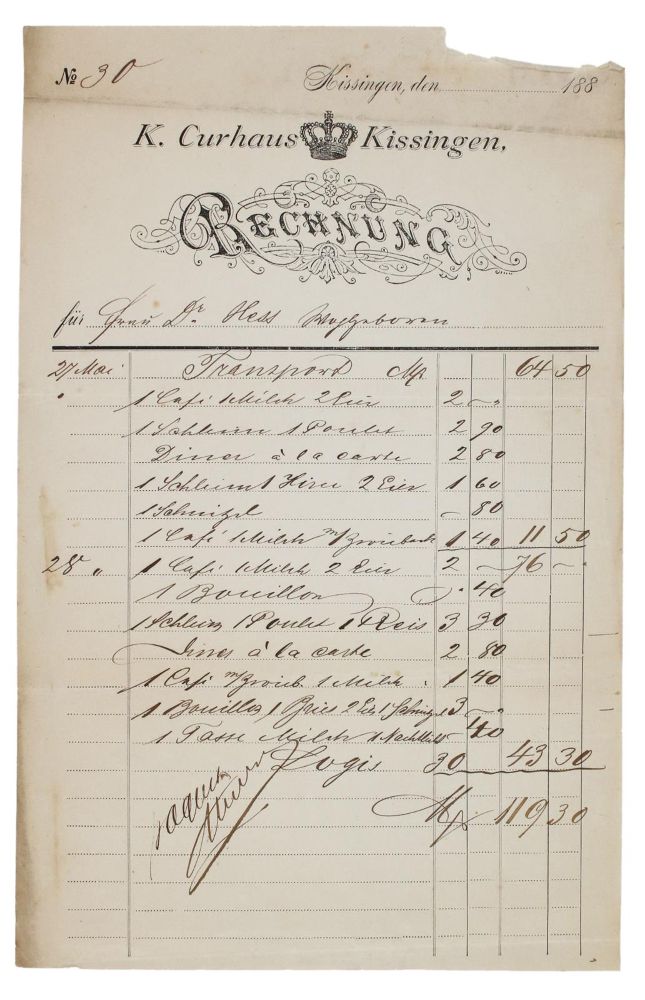 No 30 Kissingen, den 188
K. Curhaus Kissingen,
RECHNUNG
für Frau Dr. Hess Wohlgeboren
27 Mai Transport Mk 64 50
1 Café 1 Milch 2 Eier 2 —
1 Schleim 1 Poulet 2 90
Diner à la carte 2 80
1 Schleim 1 Hirn 2 Eier 1 60
1 Schnitzel — 80
1 Café 1 Milch m/ Zwieback 1 40 11 50
28 " 1 Café 1 Milch 2 Eier 2 — 76 —
1 Bouillon 40
1 Schleim 1 Poulet 1 Reis 3 30
Diner à la carte 2 80
1 Café m/ Zwieb. 1 Milch 1 40
1 Bouillon 1 2 Eier 1 Schnitzel 3 —
1 Tasse Milch 40
Logis 30 43 30
Mk 119 30